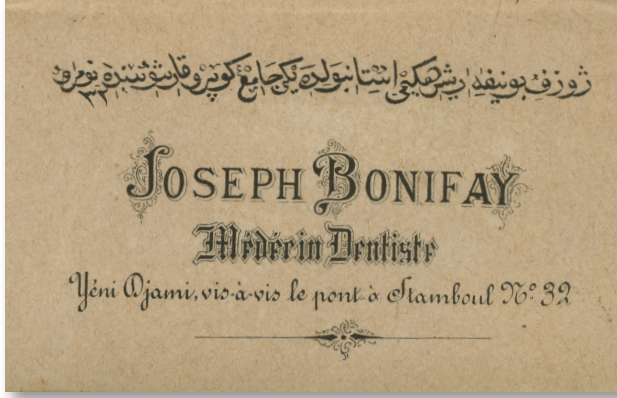 ژوزف بونيفه ديش حكيمى استانبولده يكى جامع كوپرو قارشوسنده نومرو ٣٢
JOSEPH BONIFAY
Médécin Dentiste
Yéni Djami, vis-à-vis le pont à Stamboul Nº 32